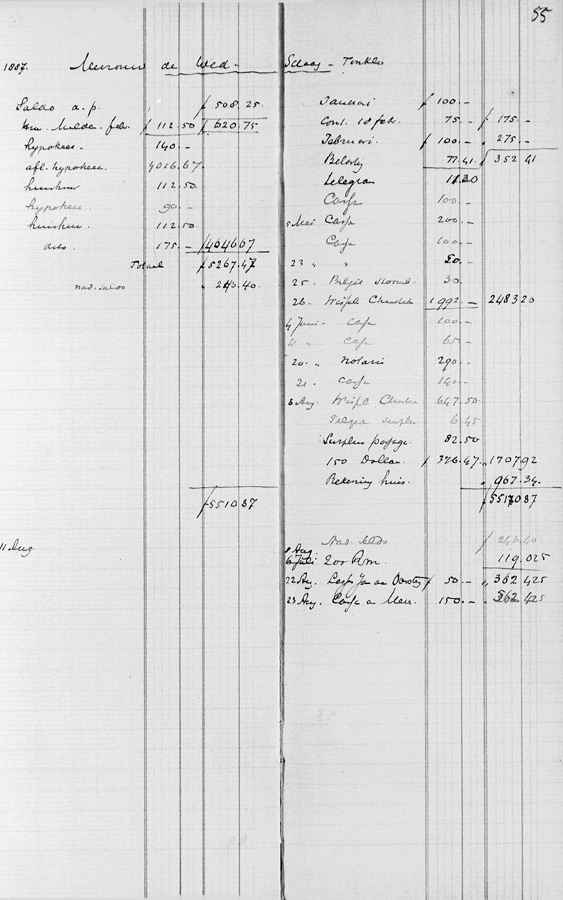 55
1887. Mevrouw de Wed. Schaap - Tonkler
Saldo a. p. f 508.25
Huur Mulder feb. f 112.50 f 620.75
hypotheek - 140.-
afl. hypotheek. 4016.67.
huishuur 112.50.
hypotheek 90.-
huishuur. 112.50
dito 175.- f 4646 67
Totaal f 5267.47
nad. saldo " 243.40.
f 5510 87
11 Aug.
Januari f 100.-
Cont. 10 feb. 75.- f 175.-
Februari. f 100.- " 275.-
Belasting 77.41. f 352 41
telegram 11.20
Cassa 100.-
5 Mei Cassa 200.-
Cassa 100.-
23 " " 50.-
25. 30.
26. Wissel 1992.- 2483 20
4 Juni. Cassa 100.-
11 " Cassa 65.-
20. " Notaris 290.-
21. Cassa 140.-
6 Aug. Wissel 647.50
6.45
Surplus passage. 82.50
150 Dollar. f 376.47. " 1707 92
Rekening huis. " 967.34.
f 5510 87
Nad. Saldo f 243.40
8 Aug.
6 Juli 200 Rm. 119.025
22 Aug. f 50.- " 362 425
23 Aug. Cassa a 150.- " 562 425